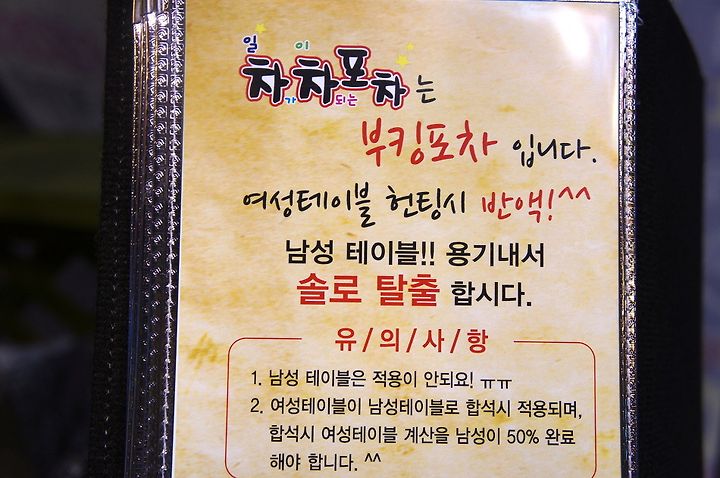 일 이
차차포차는
가 되는
부킹포차 입니다.
여성테이블 헌팅시 반액!^^
남성 테이블!! 용기내서
솔로 탈출 합시다.
유/의/사/항
1. 남성 테이블은 적용이 안되요! ㅠㅠ
2. 여성테이블이 남성테이블로 합석시 적용되며,
합석시 여성테이블 계산을 남성이 50% 완료
해야 합니다. ^^